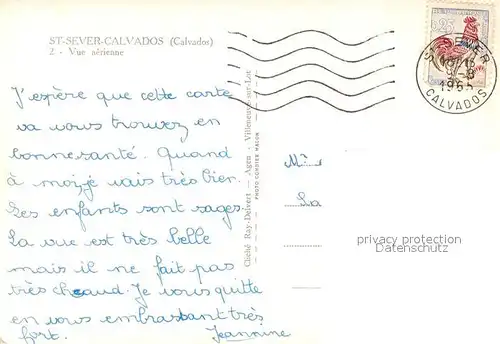 ST-SEVER-CALVADOS (Calvados)
2 - Vue aérienne
J'espère que cette carte
va vous trouvez en
bonne santé. Quand
à moi je vais très bien.
Les enfants sont sages.
La vue est très belle
mais il ne fait pas
très chaud. Je vous quitte
en vous embrastant très
fort. Jeannine
Cliché Ray-Delvert - Agen - Villeneuve-sur-Lot
PHOTO COMBIER MACON
0,25
ST SEVER
1965
CALVADOS
La
privacy protection
Datenschutz